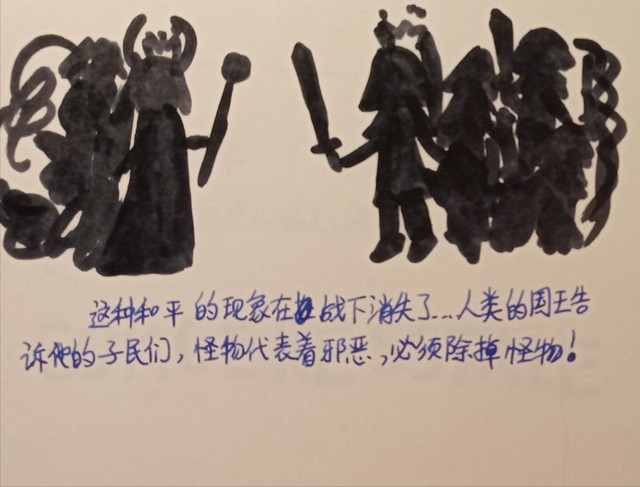 这种和平的现象在战下消失了...人类的国王告
诉他的子民们,怪物代表着邪恶,必须除掉怪物!